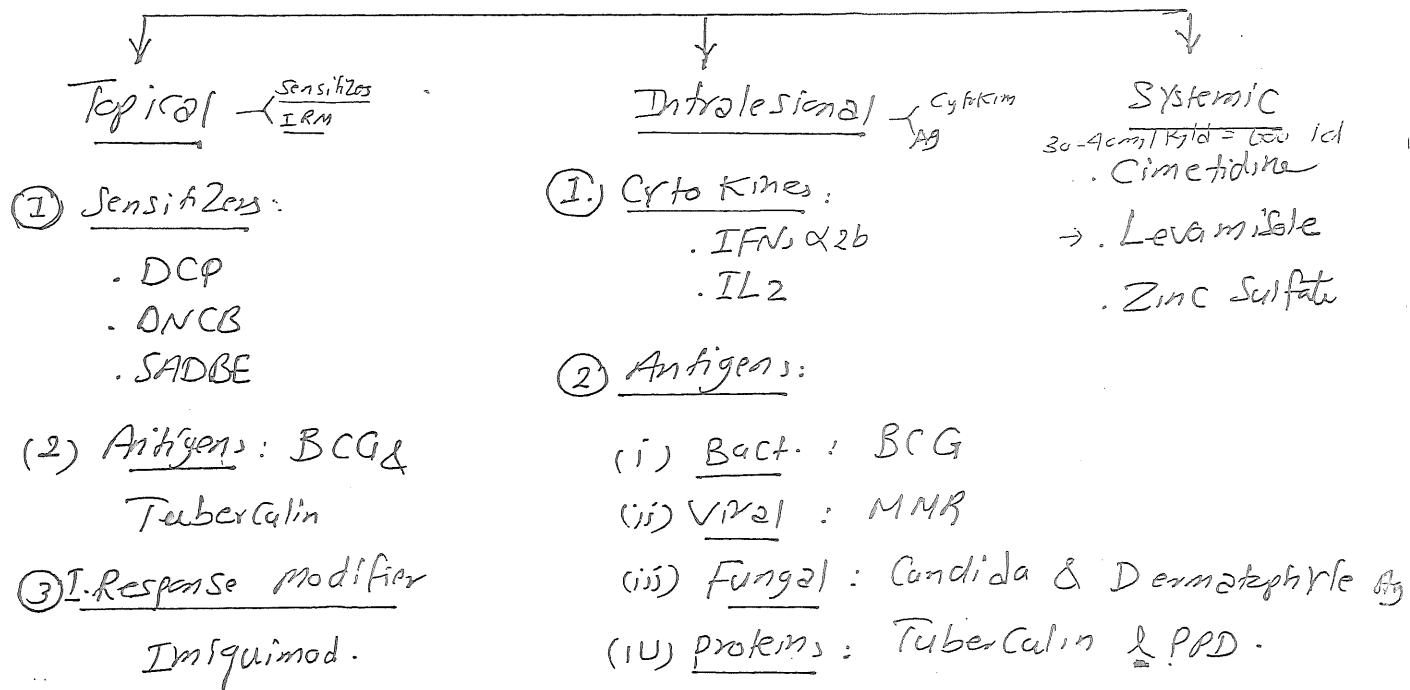 Topical
Sensitizes
IRM
① Sensitizers:
. DCP
. DNCB
. SADBE
(2) Antigens: BCG &
Tubercalin
③ I. Response modifier
Imiquimod.
Intralesional
Cytokim
Ag
①. Cytokines:
. IFNs α2b
. IL2
② Antigens:
(i) Bact. : BCG
(ii) Viral : MMR
(iii) Fungal : Candida & Dermatophyte Ag
(iv) proteins : Tubercalin & PPD.
Systemic
30-40mg/kg/d =
. Cimetidine
→ . Levamisole
. Zinc Sulfate